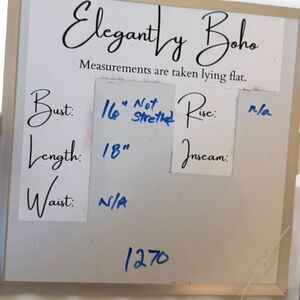 Elegantly Boho
Measurements are taken lying flat.
Bust: 16" Not Stretched Rise: n/a
Length: 18" Inseam:
Waist: N/A
1270